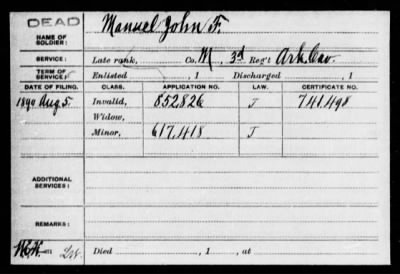 DEAD
NAME OF SOLDIER: Manuel John F.
SERVICE: Late rank, Co. M, 3d Reg't Ark Cav.
TERM OF SERVICE: Enlisted , 1 Discharged , 1
DATE OF FILING. CLASS. APPLICATION NO. LAW. CERTIFICATE NO.
1890 Aug 5. Invalid, 852826 J 741498
Widow,
Minor, 617,418 J
ADDITIONAL SERVICES:
REMARKS:
Died , 1 , at